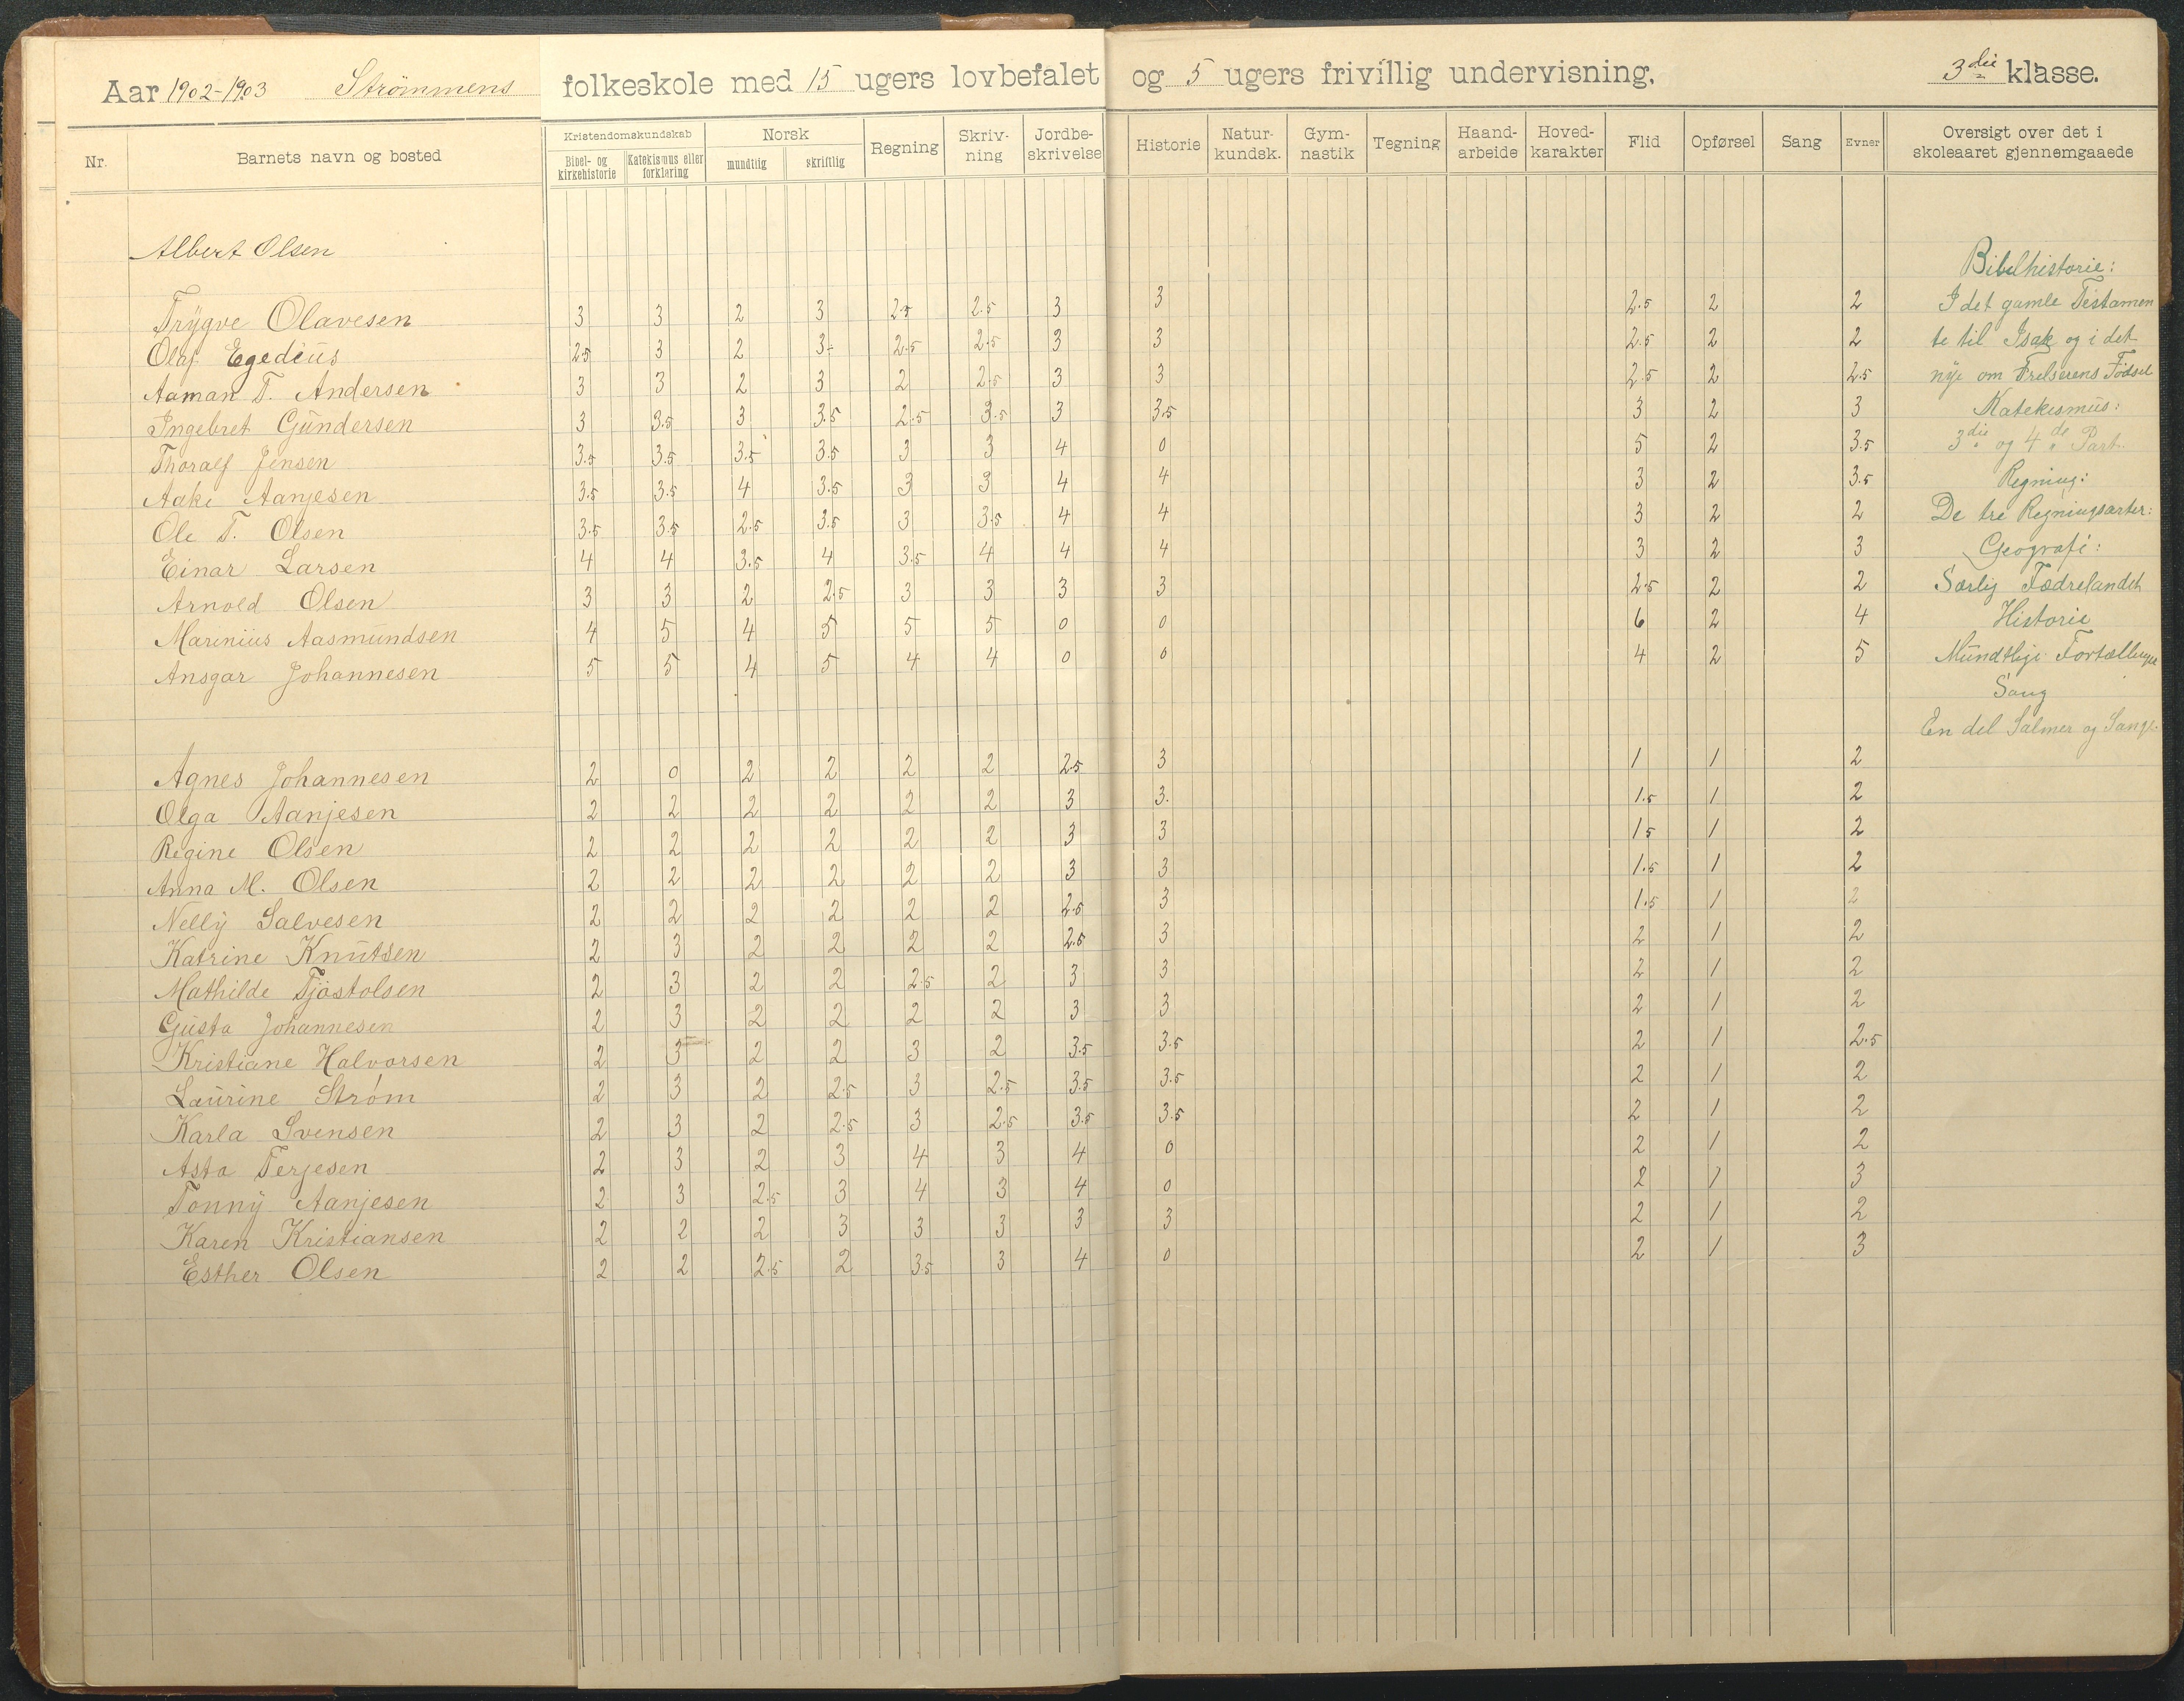 Aar 1902-1903 Strømmens folkeskole med 15 ugers lovbefalet og 5 ugers frivillig undervisning. 3die klasse.
Nr. Barnets navn og bosted Kristendomskundskab Bibel- og kirkehistorie Katekismus eller forklaring Norsk mundtlig skriftlig Regning Skriv-ning Jordbe-skrivelse Historie Natur-kundsk. Gym-nastik Tegning Haand-arbeide Hoved-karakter Flid Opførsel Sang Evner Oversigt over det i skoleaaret gjennemgaaede
Albert Olsen
Trygve Olavesen 3 3 2 3 2.5 2.5 3 3 2.5 2 2
Olaf Egedius 2.5 3 2 3 2.5 2.5 3 3 2.5 2 2
Aaman T. Andersen 3 3 2 3 2 2.5 3 3 2.5 2 2.5
Ingebret Gundersen 3 3.5 3 3.5 2.5 3.5 3 3.5 3 2 3
Thoralf Jensen 3.5 3.5 3.5 3.5 3 3 4 0 5 2 3.5
Aake Aanjesen 3.5 3.5 4 3.5 3 3 4 4 3 2 3.5
Ole T. Olsen 3.5 3.5 2.5 3.5 3 3.5 4 4 3 2 2
Einar Larsen 4 4 3.5 4 3.5 4 4 4 3 2 3
Arnold Olsen 3 3 2 2.5 3 3 3 3 2.5 2 2
Marinius Aasmundsen 4 5 4 5 5 5 0 0 6 2 4
Ansgar Johannesen 5 5 4 5 4 4 0 0 4 2 5
Agnes Johannesen 2 0 2 2 2 2 2.5 3 1 1 2
Olga Aanjesen 2 2 2 2 2 2 3 3. 1.5 1 2
Regine Olsen 2 2 2 2 2 2 3 3 1.5 1 2
Anna M. Olsen 2 2 2 2 2 2 3 3 1.5 1 2
Nelly Salvesen 2 2 2 2 2 2 2.5 3 1.5 1 2
Katrine Knutsen 2 3 2 2 2 2 2.5 3 2 1 2
Mathilde Tjöstolsen 2 3 2 2 2.5 2 3 3 2 1 2
Gusta Johannesen 2 3 2 2 2 2 3 3 2 1 2
Kristiane Halvorsen 2 3 2 2 3 2 3.5 3.5 2 1 2.5
Laurine Strøm 2 3 2 2.5 3 2.5 3.5 3.5 2 1 2
Karla Svensen 2 3 2 2.5 3 2.5 3.5 3.5 2 1 2
Asta Terjesen 2 3 2 3 4 3 4 0 2 1 2
Tonny Aanjesen 2 3 2.5 3 4 3 4 0 2 1 3
Karen Kristiansen 2 2 2 3 3 3 3 3 2 1 2
Esther Olsen 2 2 2.5 2 3.5 3 4 0 2 1 3
Bibelhistorie:
I det gamle Testamen
te til Isak og i det
nye om Frelserens Födsel
Katekismus:
3die og 4de Part.
Regning:
De tre Regningsarter:
Geografi:
Særlig Fædrelandet
Historie
Mundtlige Fortællinger
Sang
En del Salmer og Sange